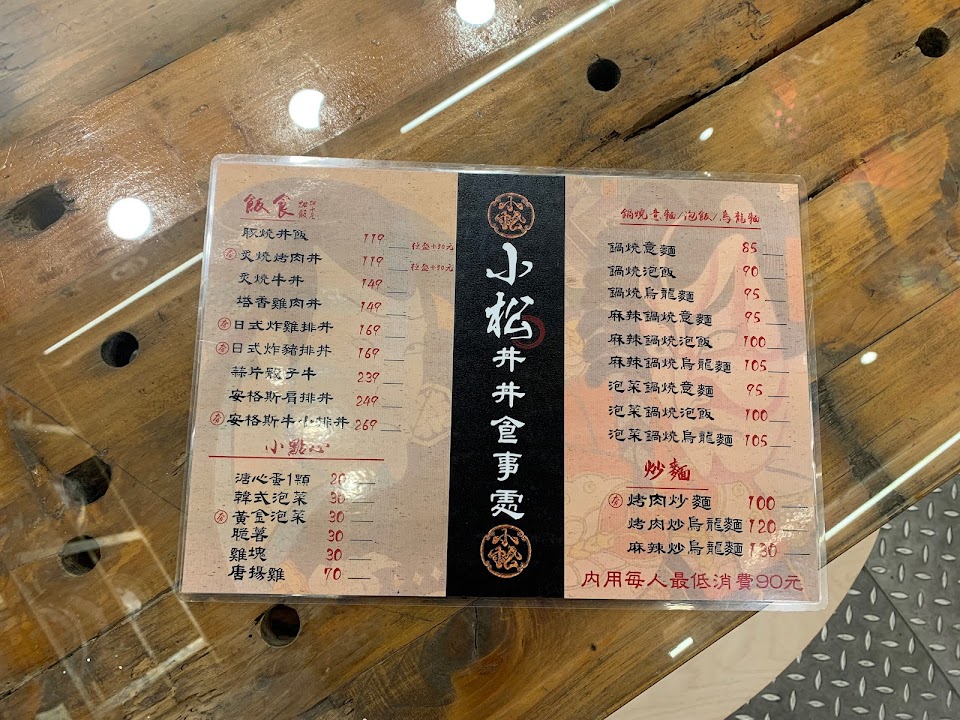 飯食
豚燒丼飯 119
桂盛+30元
炙燒烤肉丼 119
桂盛+30元
炙燒牛丼 149
塔香雞肉丼 149
日式炸雞排丼 169
日式炸豬排丼 169
蒜片骰子牛 239
安格斯肩排丼 249
安格斯牛小排丼 269
小點心
溏心蛋1顆 20
韓式泡菜 30
黃金泡菜 30
脆薯 30
雞塊 30
唐揚雞 70
小松
小松丼丼食事處
小松
鍋燒意麵/泡飯/烏龍麵
鍋燒意麵 85
鍋燒泡飯 90
鍋燒烏龍麵 95
麻辣鍋燒意麵 95
麻辣鍋燒泡飯 100
麻辣鍋燒烏龍麵 105
泡菜鍋燒意麵 95
泡菜鍋燒泡飯 100
泡菜鍋燒烏龍麵 105
炒麵
烤肉炒麵 100
烤肉炒烏龍麵 120
麻辣炒烏龍麵 130
內用每人最低消費90元